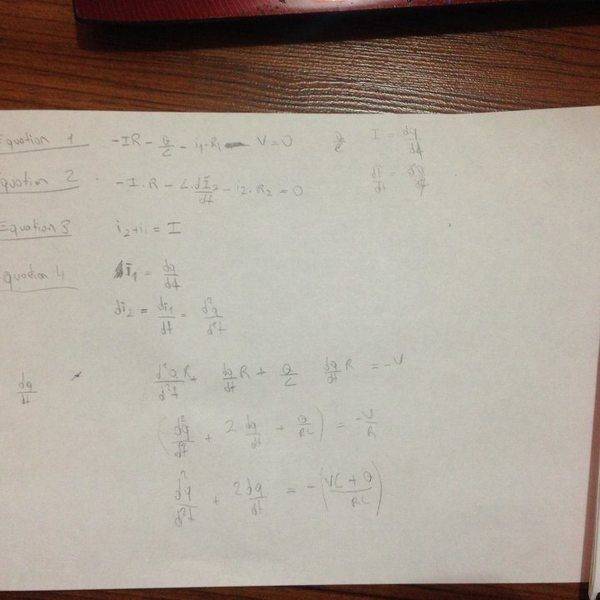 Equation 1 -IR - Q/C - i1.R1 - V=0 I = dq/dt
Equation 2 -I.R - L.dI2/dt - i2.R2 = 0
Equation 3 i2+i1 = I
Equation 4 i1 = dq/dt
di2 = di1/dt = d²q/d²t
dq/dt d²Q/d²t R + dq/dt R + Q/C dq/dt R = -V
(d²q/d²t + 2 dq/dt + Q/RC) = -V/R
d²q/d²t + 2dq/dt = -(VC + Q/RC)